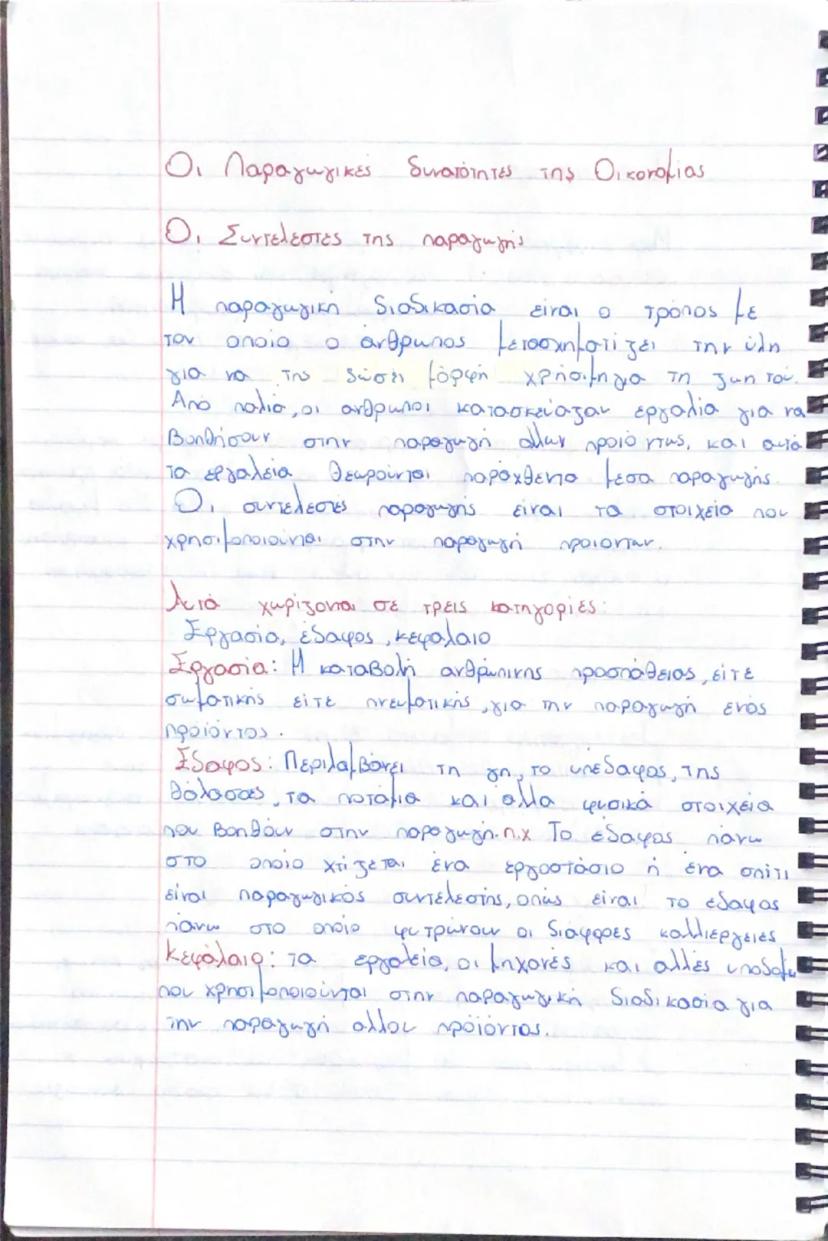 Οι Παραγωγικές δυνατότητες της Οικονομίας
Οι Συντελεστές της παραγωγής
Η παραγωγική διαδικασία είναι ο τρόπος με
τον οποίο ο άνθρωπος μετασχηματίζει την ύλη
για να της δώσει μορφή χρήσιμη για τη ζωή του.
Από παλιά, οι άνθρωποι κατασκεύαζαν εργαλία για να
βοηθήσουν στην παραγωγή άλλων προϊόντως, και αυτά
τα εργαλεία θεωρούνται παραχθεντα μέσα παραγωγής.
Οι συντελεστές παραγωγής είναι τα στοιχεία που
χρησιμοποιούνται στην παραγωγή προιόντων.
Αυτά χωρίζονται σε τρεις κατηγορίες:
Εργασία, έδαφος, κεφάλαιο
Εργασία: Η καταβολή ανθρώπινης προσπάθειας, είτε
σωματικής είτε πνευματικής, για την παραγωγή ενός
προϊόντος.
Έδαφος: Περιλαμβάνει τη γη, το υπέδαφος, της
θάλασσες, τα ποτάμια και άλλα φυσικά στοιχεία
που βοηθούν στην παραγωγή. π.χ Το έδαφος πάνω
στο οποίο χτίζεται ένα εργοστάσιο ή ένα σπίτι
είναι παραγωγικός συντελεστής, οπώς είναι το έδαφος
πάνω στο οποίο φυτρώνουν οι διάφορες καλλιέργειες
Κεφάλαιο: τα εργαλεία, οι μηχανές και αλλές υποδομ
που χρησιμοποιούνται στην παραγωγική διαδικασία για
την παραγωγή αλλου προϊόντος.